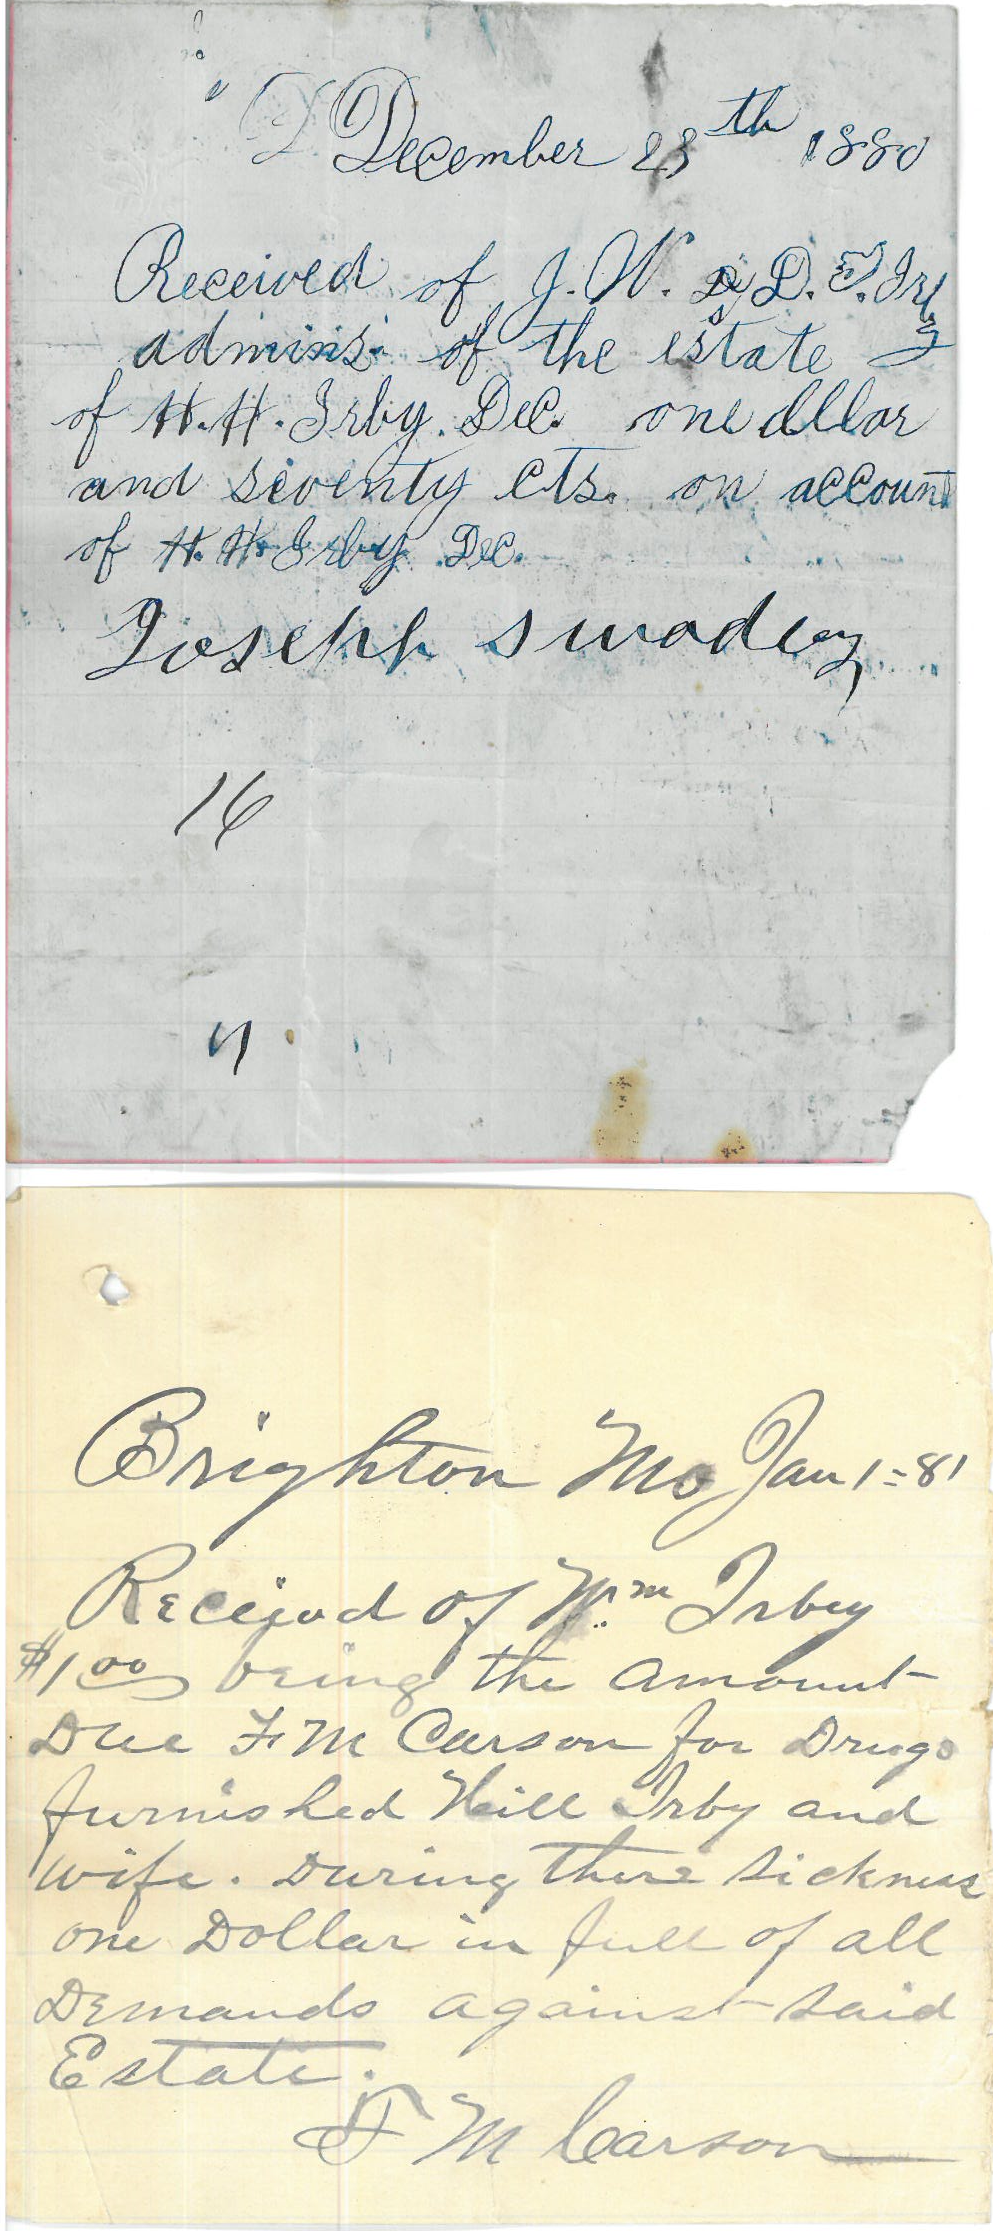 December 28th 1880
Received of J. W. & D. E. Irby
adminis. of the estate
of H. H. Irby. Dec. one dllar
and seventy cts. on account
of H. H. Irby Dec.
Joseph Swadley
16
Brighton Mo Jan 1=81
Received of Wm Irby
$1.00 being the amount
Due F M Carson for Drugs
furnished Hill Irby and
wife. During there sickness
one Dollar in full of all
Demands against said
Estate.
F M Carson